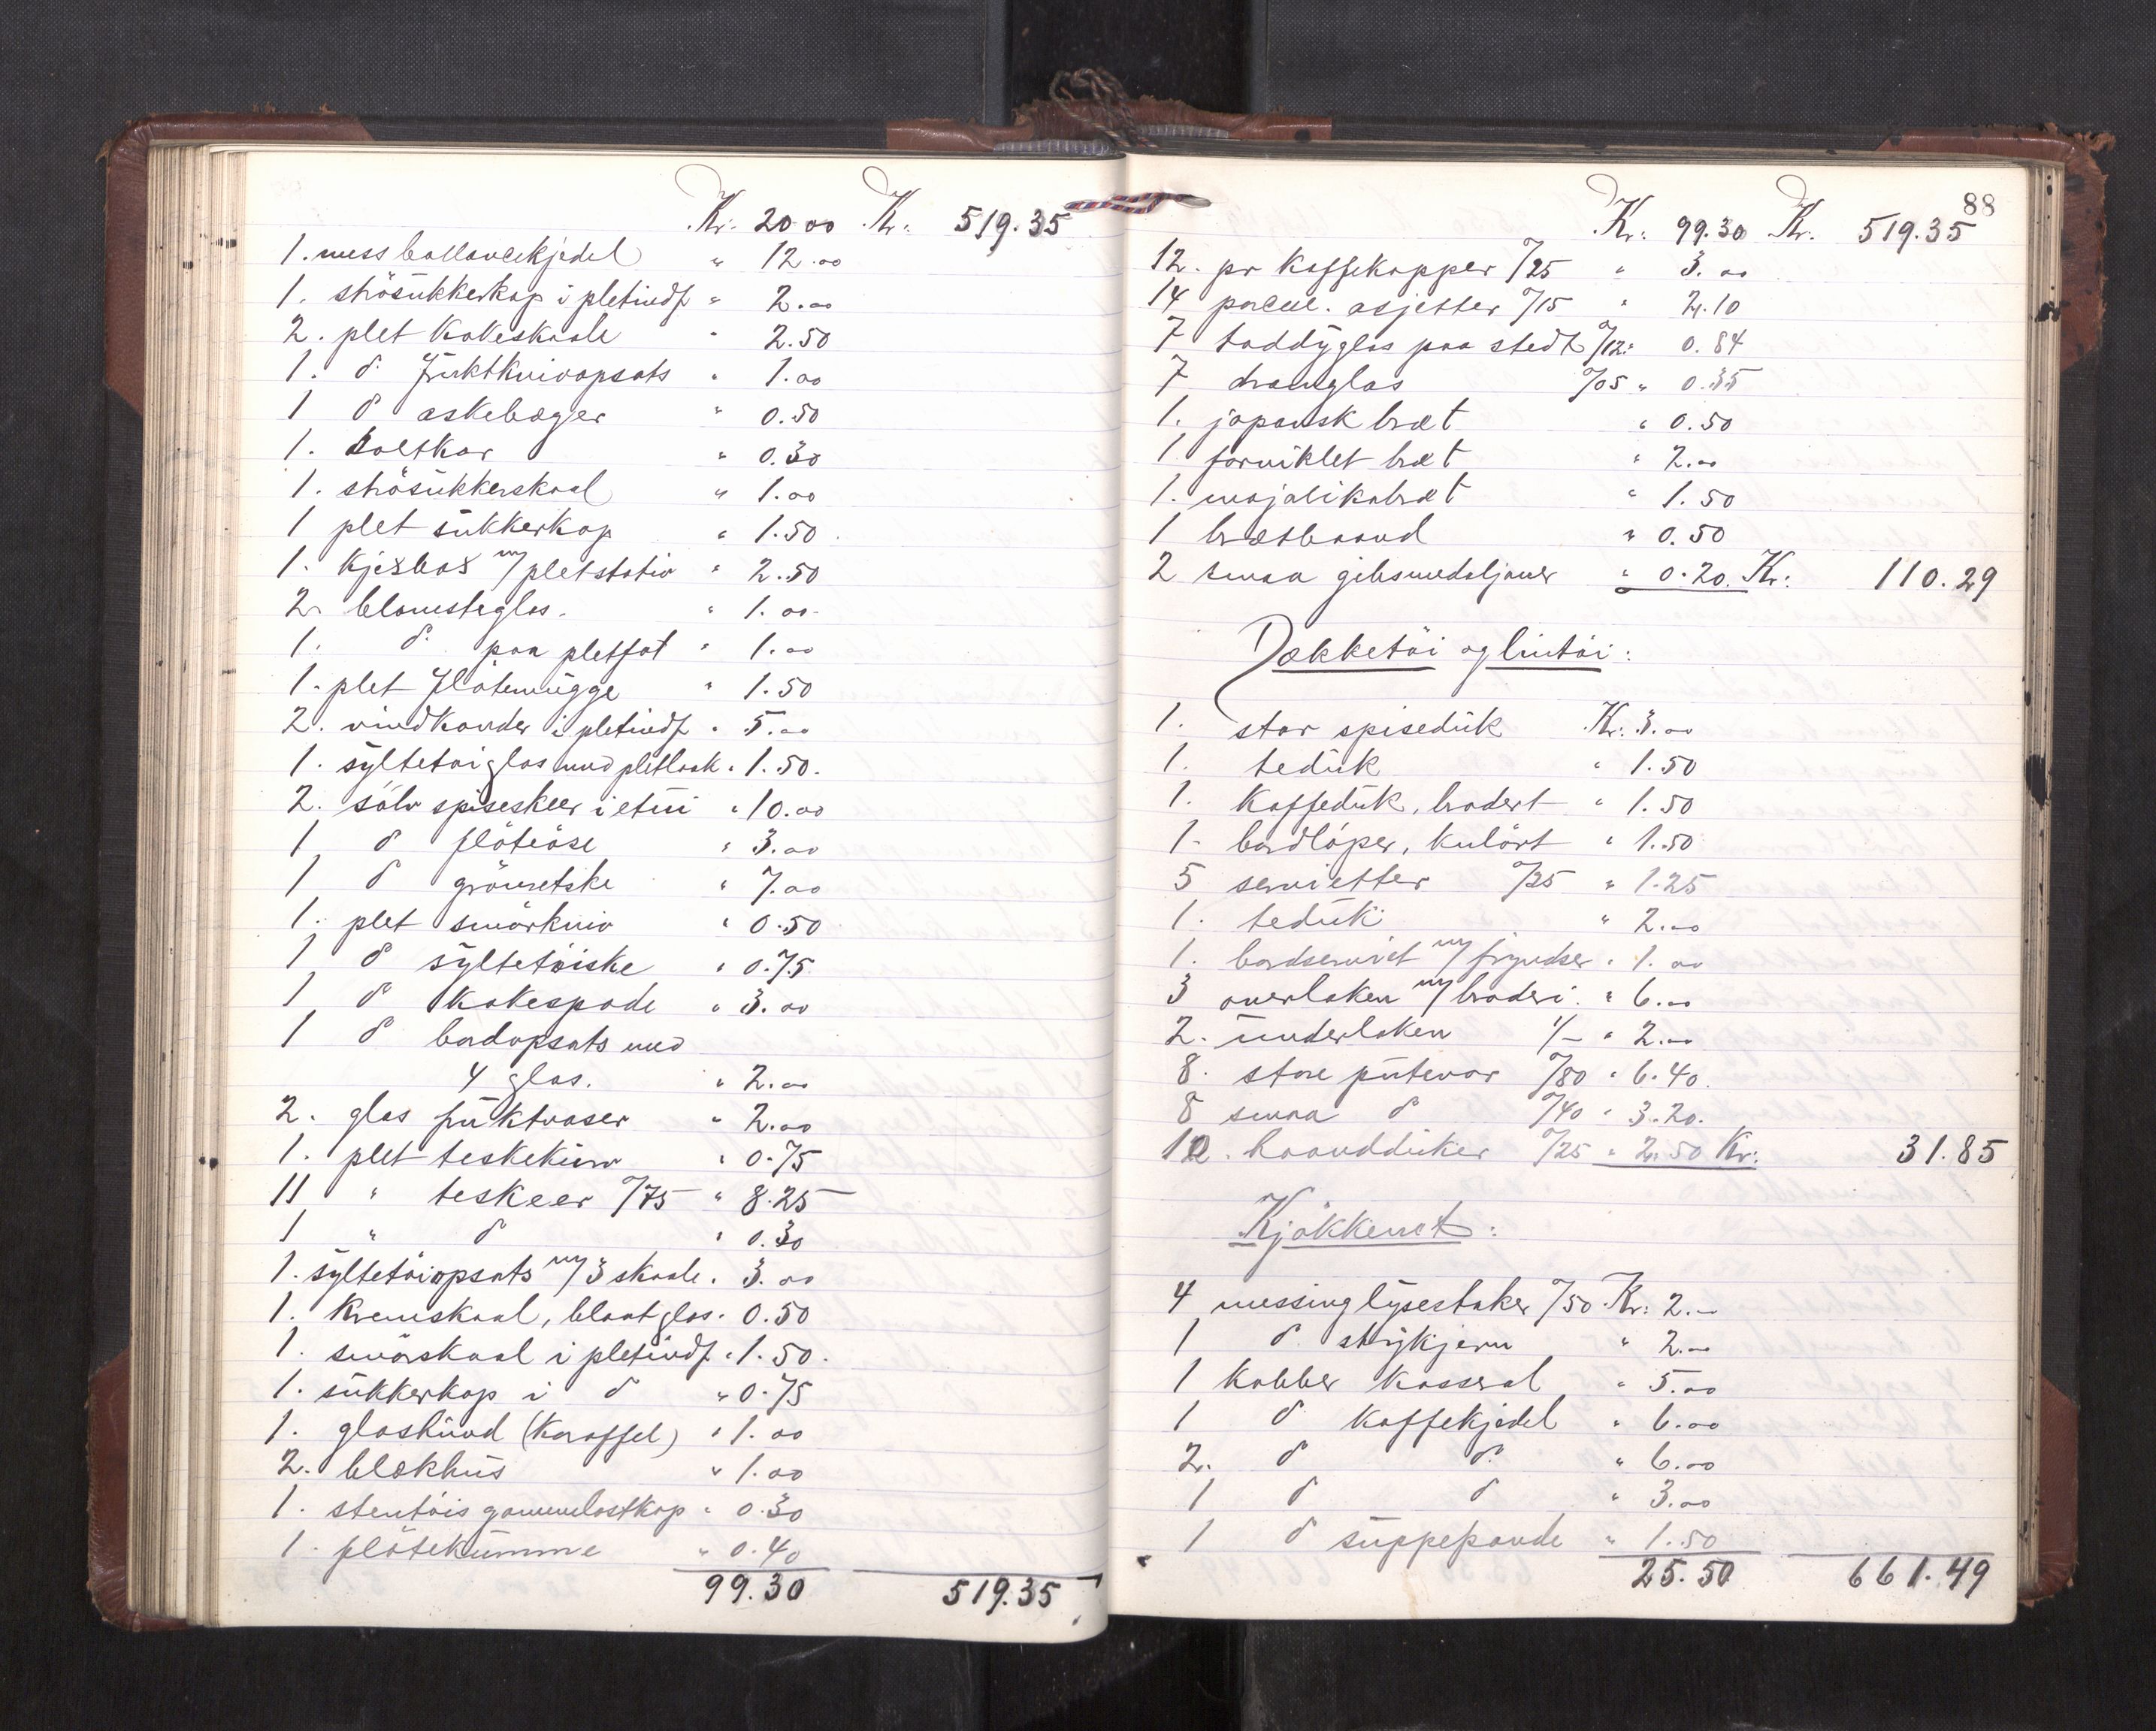 Kr. 20 00 Kr. 519.35
1. mess ballancekjedel " 12.00
1. strösukkerkop i pletindf. " 2.00
2. plet kakeskaale " 2.50
1. do fruktknivopsats " 1.00
1 do askebæger " 0.50
1. saltkar " 0.30
1. strösukkerskaal " 1.00
1 plet sukkerkop " 1.50
1. kjexbox m/ pletstativ " 2.50
2 blomsterglas. " 1.00
1. do paa pletfot " 1.00
1. plet flötemugge " 1.50
2. vindkander i pletindf. " 5.00
1. syltetöiglas med pletlaak " 1.50.
2. sölv spiseskeer i etui " 10.00
1 do flöteöse " 3.00
1 do grönnetske " 7.00
1. plet smörkniv " 0.50
1 do syltetöiske " 0.75
1 do kakespade " 3.00
1 do bordopsats med
4 glas. " 2.00
2. glas fruktvaser " 2.00
1. plet teskekurv " 0.75
11 " teskeer %75 " 8.25
1 " do " 0.30
1. syltetöiopsats m/ 3 skaale " 3.00
1. kremskaal, blaat glas " 0.50
1. smörskaal i pletindf. " 1.50.
1. sukkerkop i do " 0.75
1. glashund (karaffel) " 1.00
2. blekhus " 1.00
1. stentöis gammelostkop " 0.30
1. flötekumme " 0.40
99.30 519.35
88
Kr. 99.30 Kr. 519.35
12. pr kaffekopper %25 " 3.00
14 porcel. asjetter %15 " 2.10
7 toddyglas paa stedt %12 " 0.84
7 dramglas %05 " 0.35
1. japansk bræt " 0.50
1 forniklet bræt " 2.00
1. majolikabræt " 1.50
1 brætbaand " 0.50
2 smaa gibsmedaljoner " 0.20 Kr: 110.29
Dækketöi og lintöi:
1. stor spiseduk Kr: 3.00
1. teduk " 1.50
1. kaffeduk, brodert " 1.50
1. bordlöper, kulört " 1.50
5 servietter %25 " 1.25
1. teduk " 2.00
1. bordserviet m/ fryndser " 1.00
3 overlaken m/ broderi " 6.00
2. underlaken 1/- " 2.00
8. store putevar %80 " 6.40.
8 smaa do %40 " 3.20.
10. haandduker %25 " 2.50 Kr: 31.85
Kjökkenet:
4 messing lysestaker %50 Kr: 2.-
1 do strykjern " 2.00
1 kobber kasserol " 5.00
1 do kaffekjedel " 6.00
2. do do " 6.00
1 do do " 3.00
1 do suppepande " 1.50
25.50 661.49